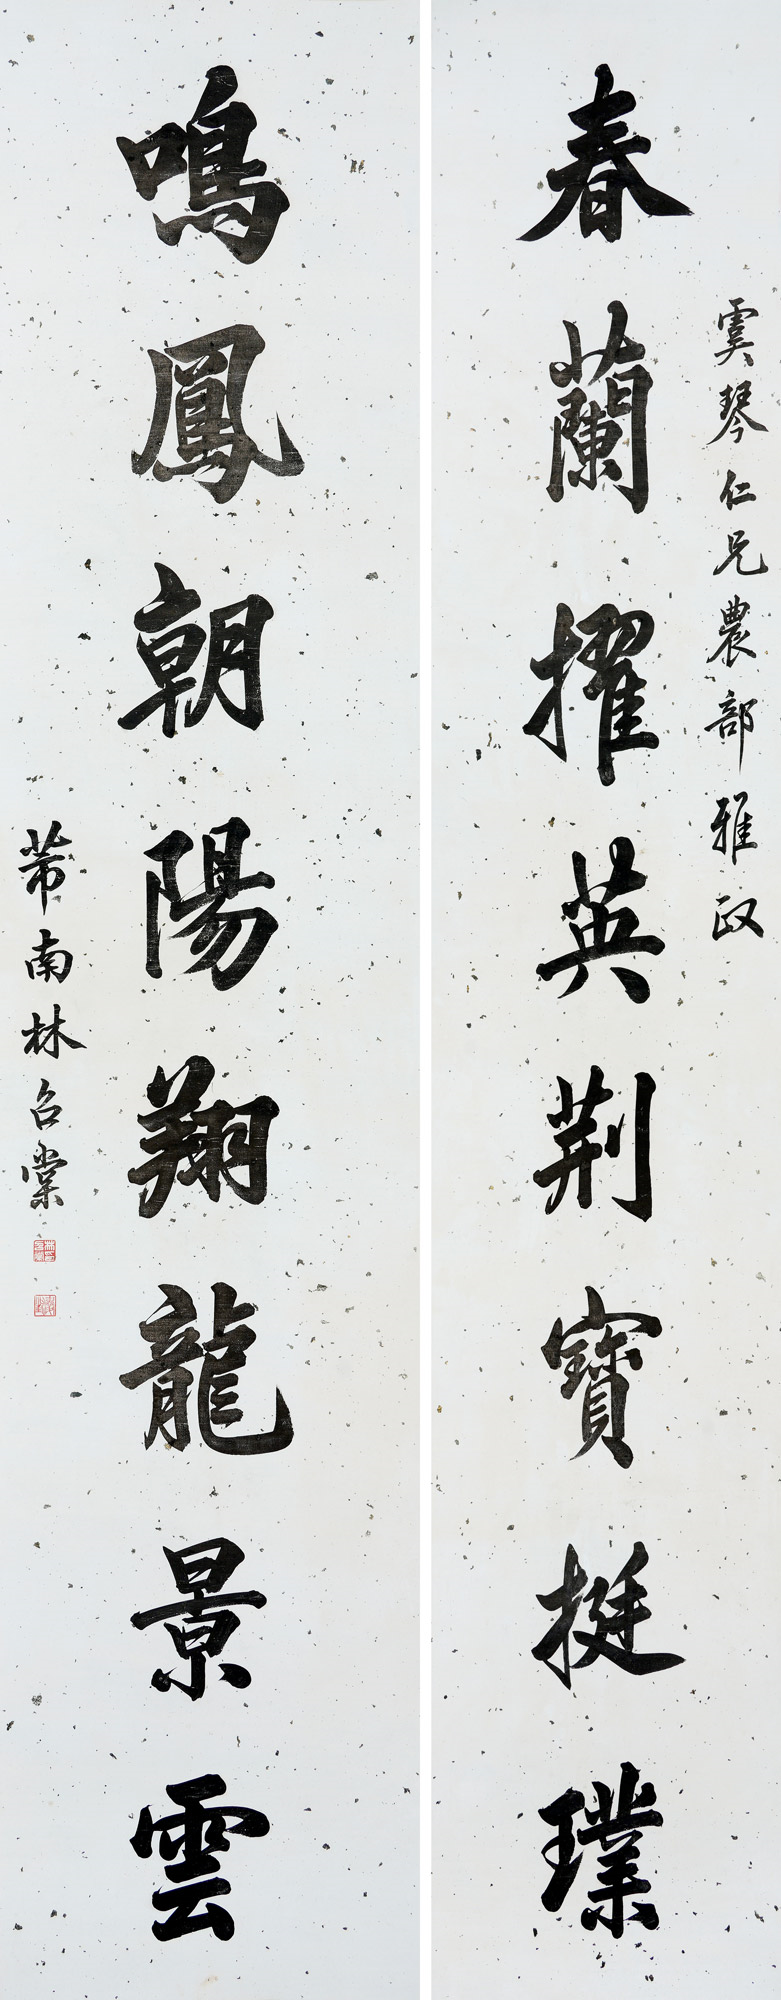 虞琴仁兄農部雅政
春蘭擢英荆寶挺璞
鳴鳳朝陽翔龍景雲
芾南林召棠